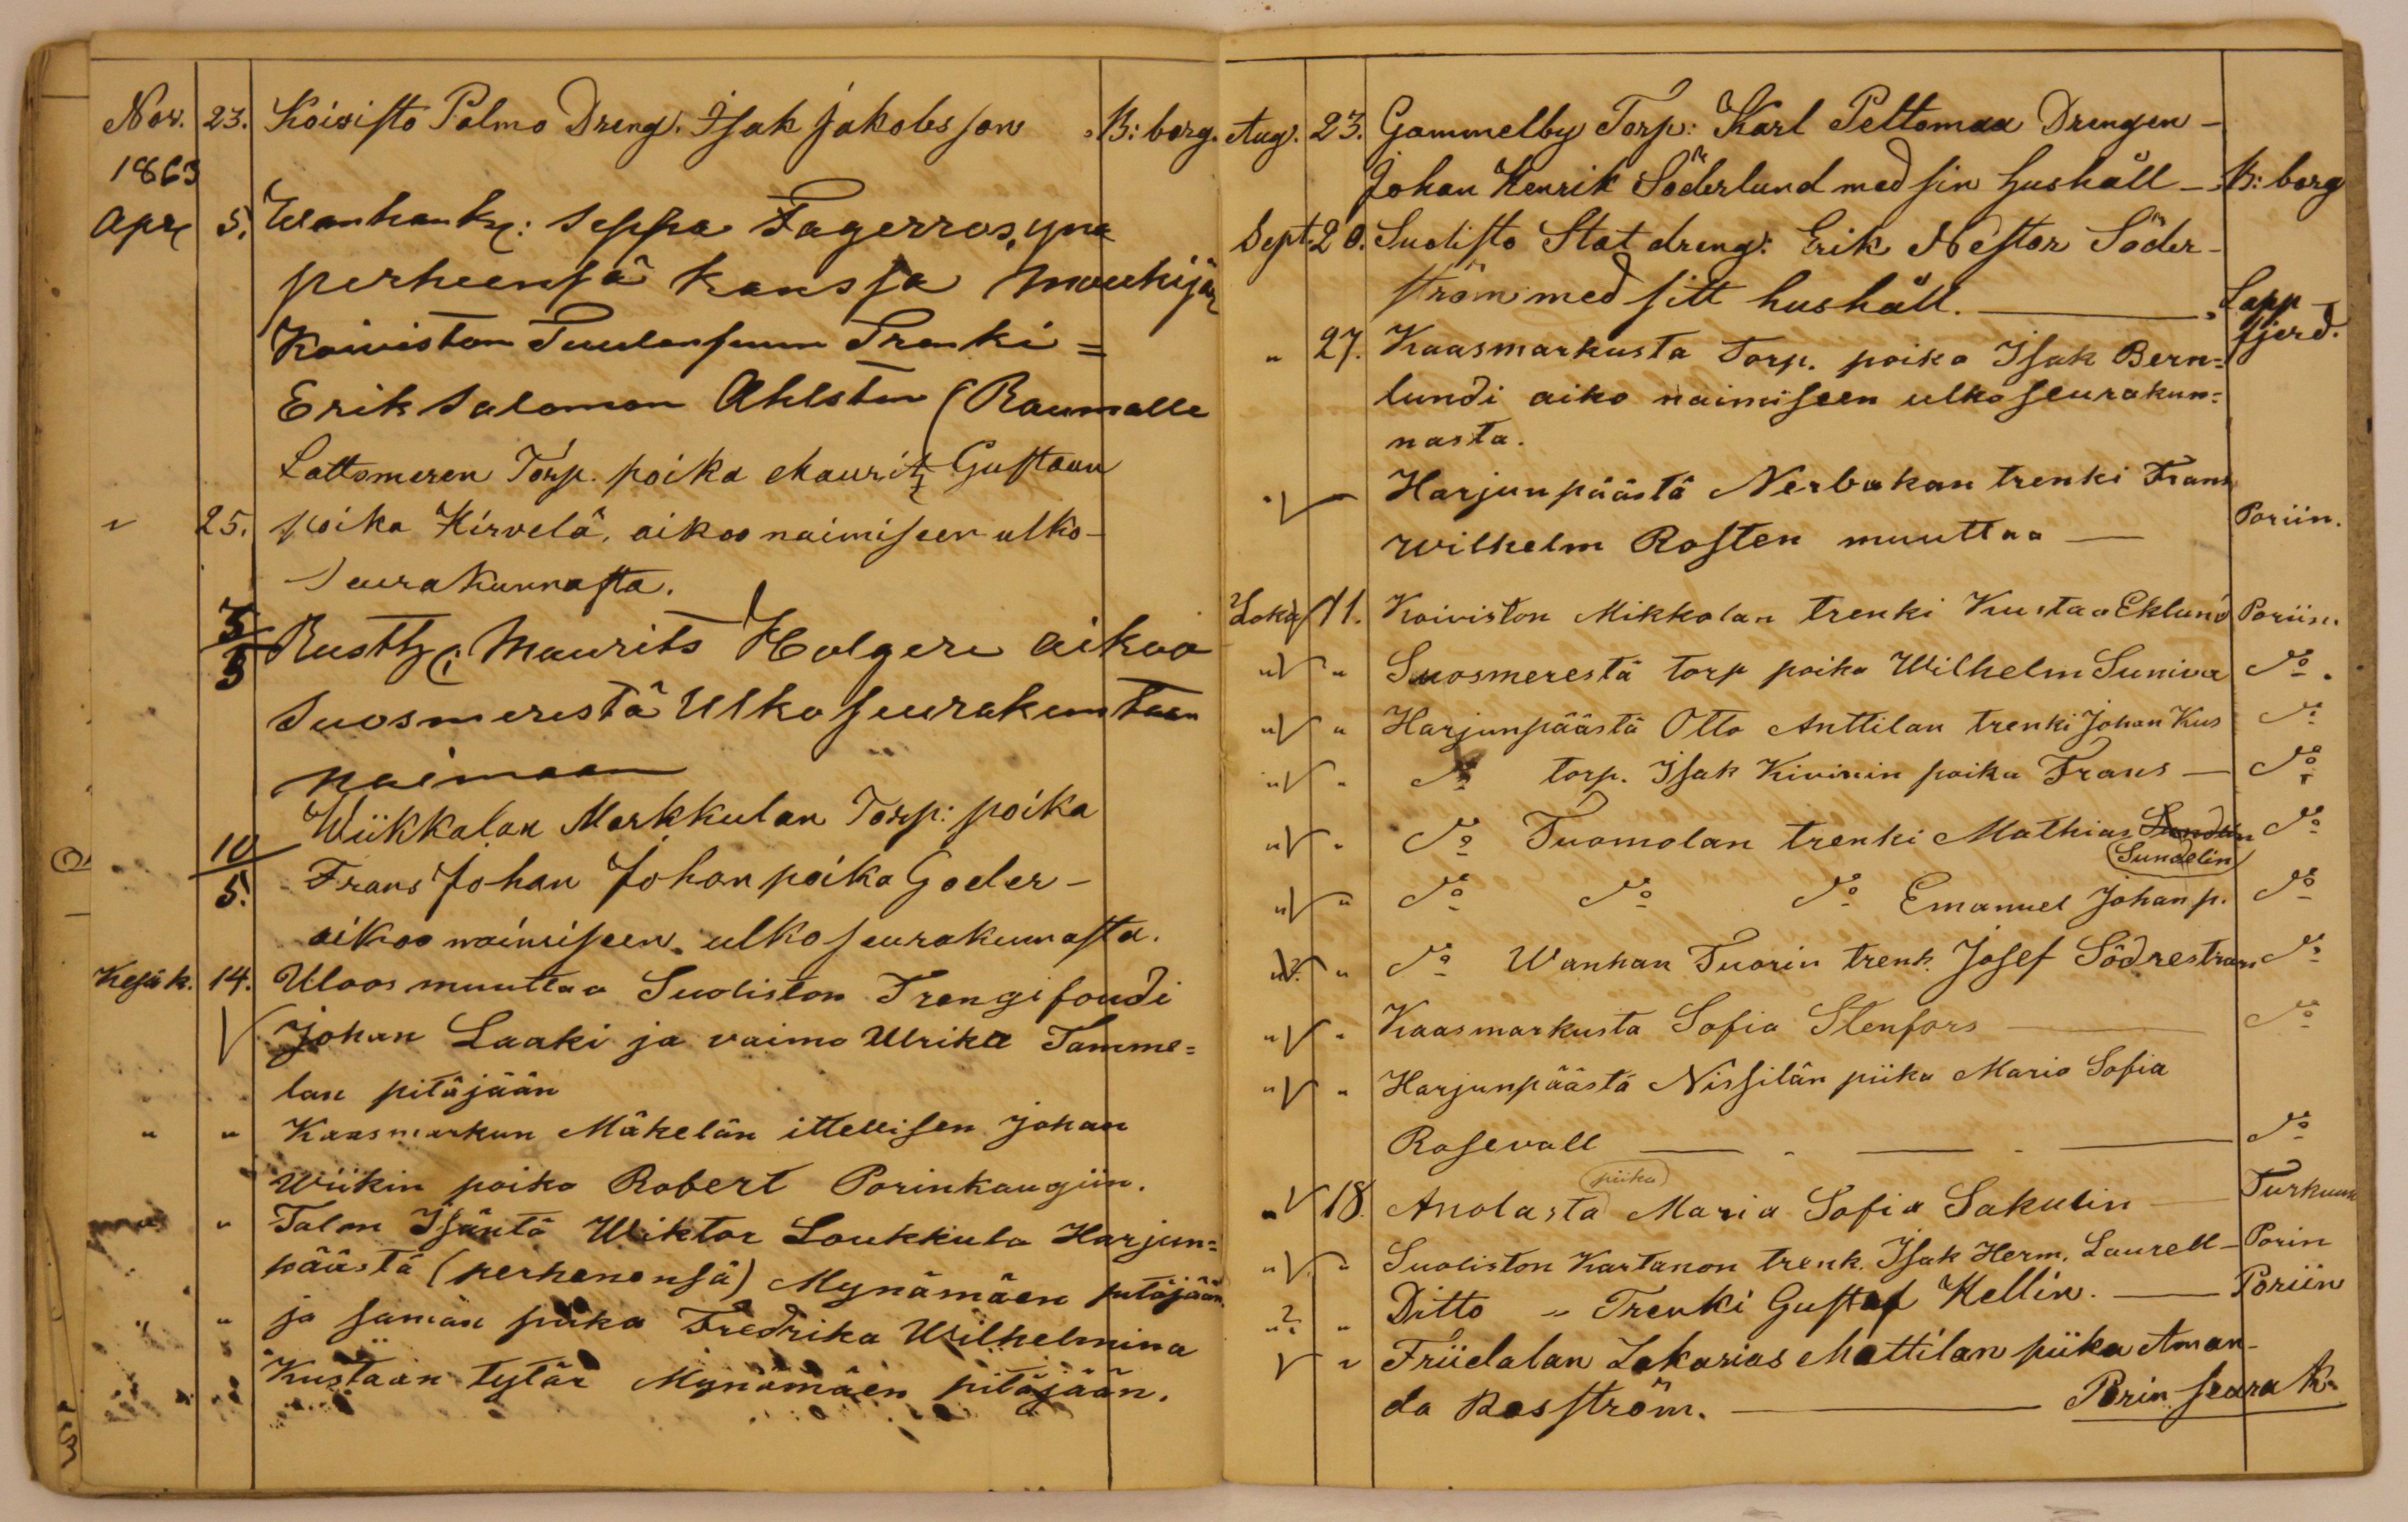 Nov. 23. Koivisto Palmo Dreng. Isak Jakobsson B:borg.
1863
Apr 5. Wanhank: Seppa Fagerros, yna
perheensä kanssa Mouhijär
Koiviston Tuulensuun Trenki =
Erik Salomon Ahlsten (Raumalle
Lattomeren Torp. poika Mauritz Gustaan
" 25. poika Hirvelä, aikoo naimiseen ulko-
seurakunnasta.
3/5 Rusttg: Maurits Holgeri aikoo
Suosmerestä Ulkoseurakuntaan
naimaan
10/5. Wiikkalan Markkulan Torp: poika
Frans Johan Johanpoika Goder-
aikoo naimiseen ulkoseurakunnasta.
Kesäk. 14. Uloos muuttaa Suoliston Trengifoudi
Johan Laaki ja vaimo Ulrika Tamme=
lan pitäjään
" " Kaasmarkun Mäkelän ittellisen Johan
Wiikin poika Robert Porinkaugiin.
" Talon Isäntä Wiktor Loukkula Harjun=
päästä (perhenensä) Mynämäen pitäjään.
" " ja saman piika Fredrika Wilhelmina
Kustaan tytär Mynämäen pitäjään.
Aug. 23. Gammelby Torp: Karl Peltomaa Drengen -
Johan Henrik Söderlund med sin hushåll - B:borg
Sept. 20. Suolisto Stat dreng: Erik Nestor Söder-
ström med sitt hushåll. Lapp-
fjerd.
" 27. Kaasmarkusta Torp. poika Isak Bern=
lundi aiko naimiseen ulkoseurakun=
nasta.
" Harjunpäästä Nerbakan trenki Frans
Wilhelm Rosten muuttaa — Poriin.
Loka 11. Koiviston Mikkolan trenki Kustaa Eklund Poriin.
" " Suosmerestä torp poika Wilhelm Suniva Do.
" " Harjunpäästä Otto Anttilan trenki Johan Kus Do
" " Do torp. Isak Kivinin poika Frans — Do
" " Do Tuomolan trenki Mathias Sundlin Do
(Sundelin)
" " Do Do Do Emanuel Johan p. Do
" " Do Wanhan Tuorin trenk. Josef Södreström Do
" " Kaasmarkusta Sofia Stenfors Do
" " Harjunpäästä Nissilän piika Maria Sofia
Rosevall — Do
piika
" 18. Anolasta Maria Sofia Sakulin Turkuun
" " Suoliston Kartanon trenk. Isak Herm. Laurell - Porin
" " Ditto " Trenki Gustaf Hellin. — Poriin
" Friidalan Zakarias Mattilan piika Aman-
da Rosström. — Porin seurak.